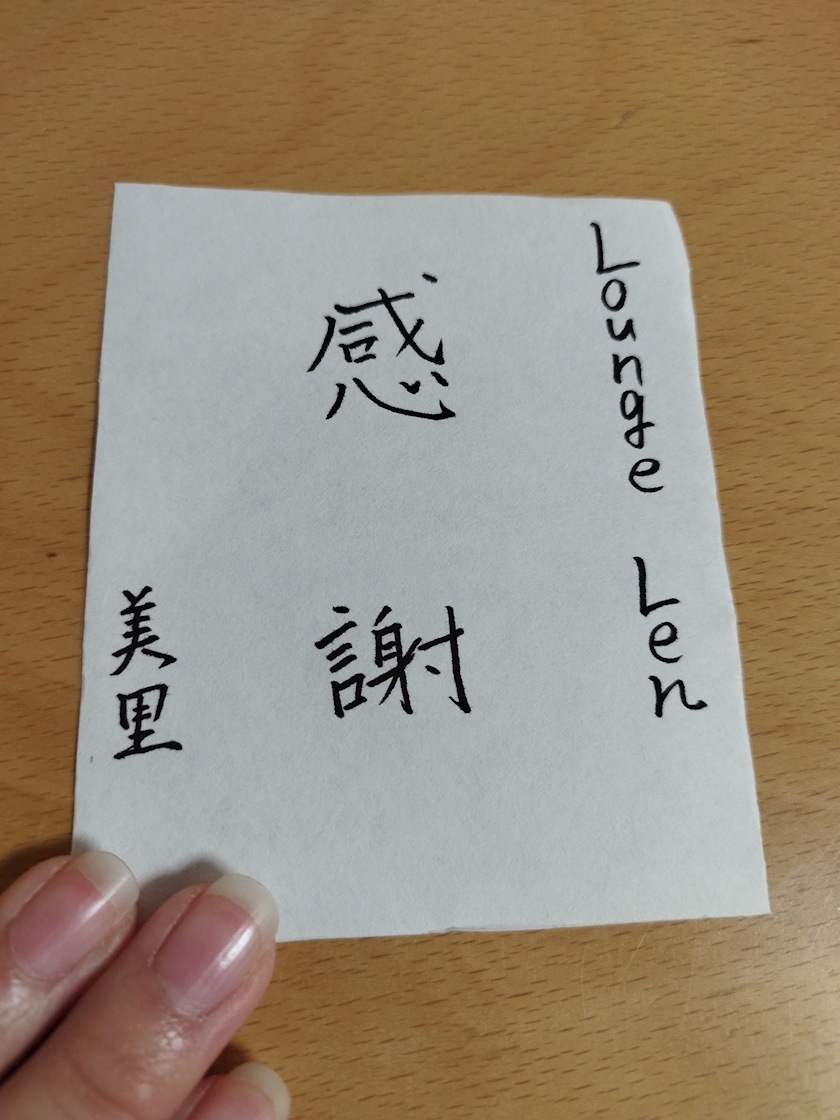 Lounge Len
感謝
美里